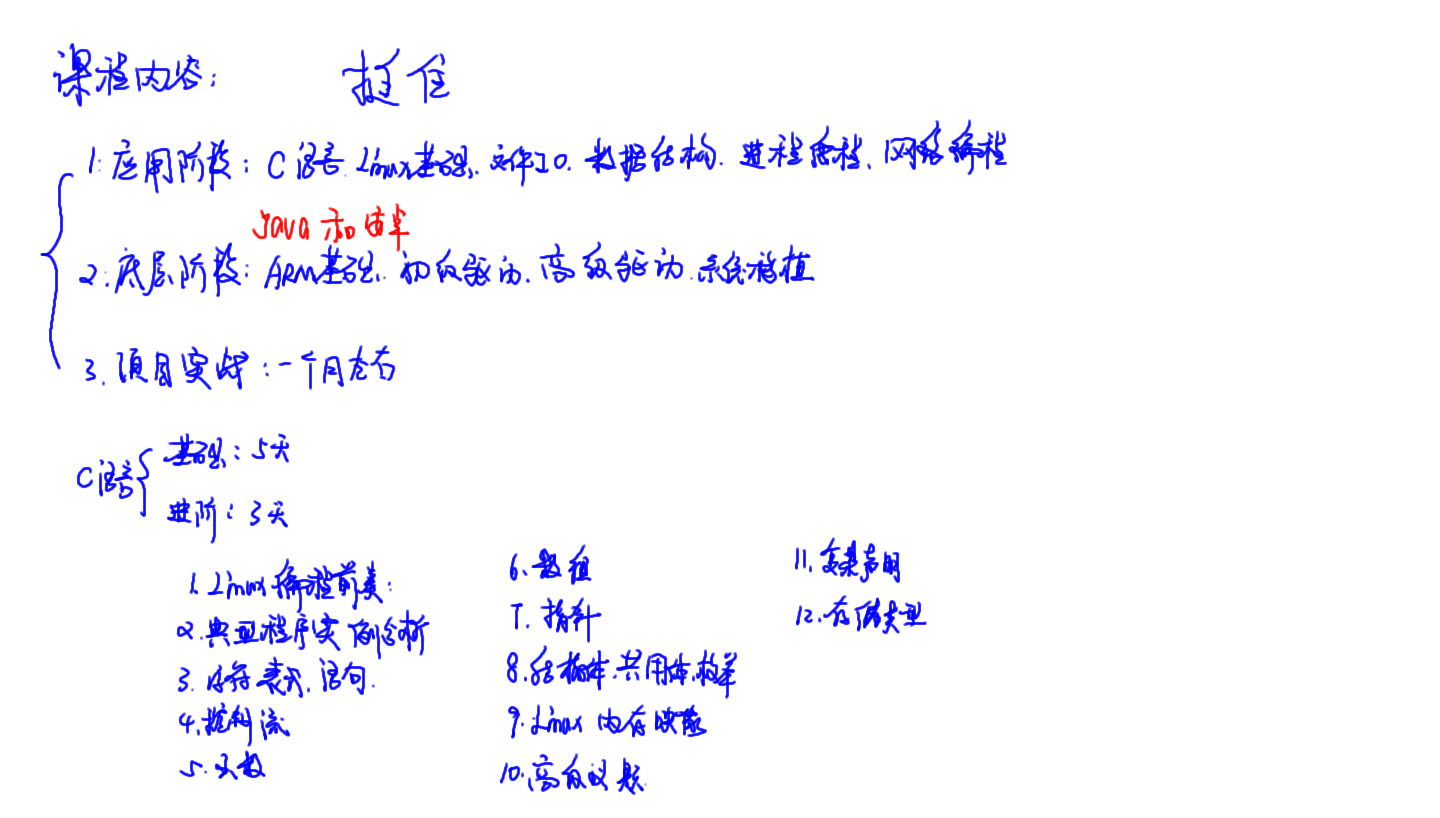 课程内容: 挺住
1.应用阶段: C语言.Linux基础.文件IO.数据结构.进程线程.网络编程
Java和安卓
2.底层阶段: ARM基础.初级驱动.高级驱动.系统移植
3.项目实战:一个月左右
C语言
基础:5天
进阶:3天
1.Linux编程前奏:
2.典型程序实例分析
3.运算符表达式.语句.
4.控制流
5.函数
6.数组
7.指针
8.结构体.共用体.枚举
9.Linux内存映像
10.高级议题
11.复杂声明
12.存储类型